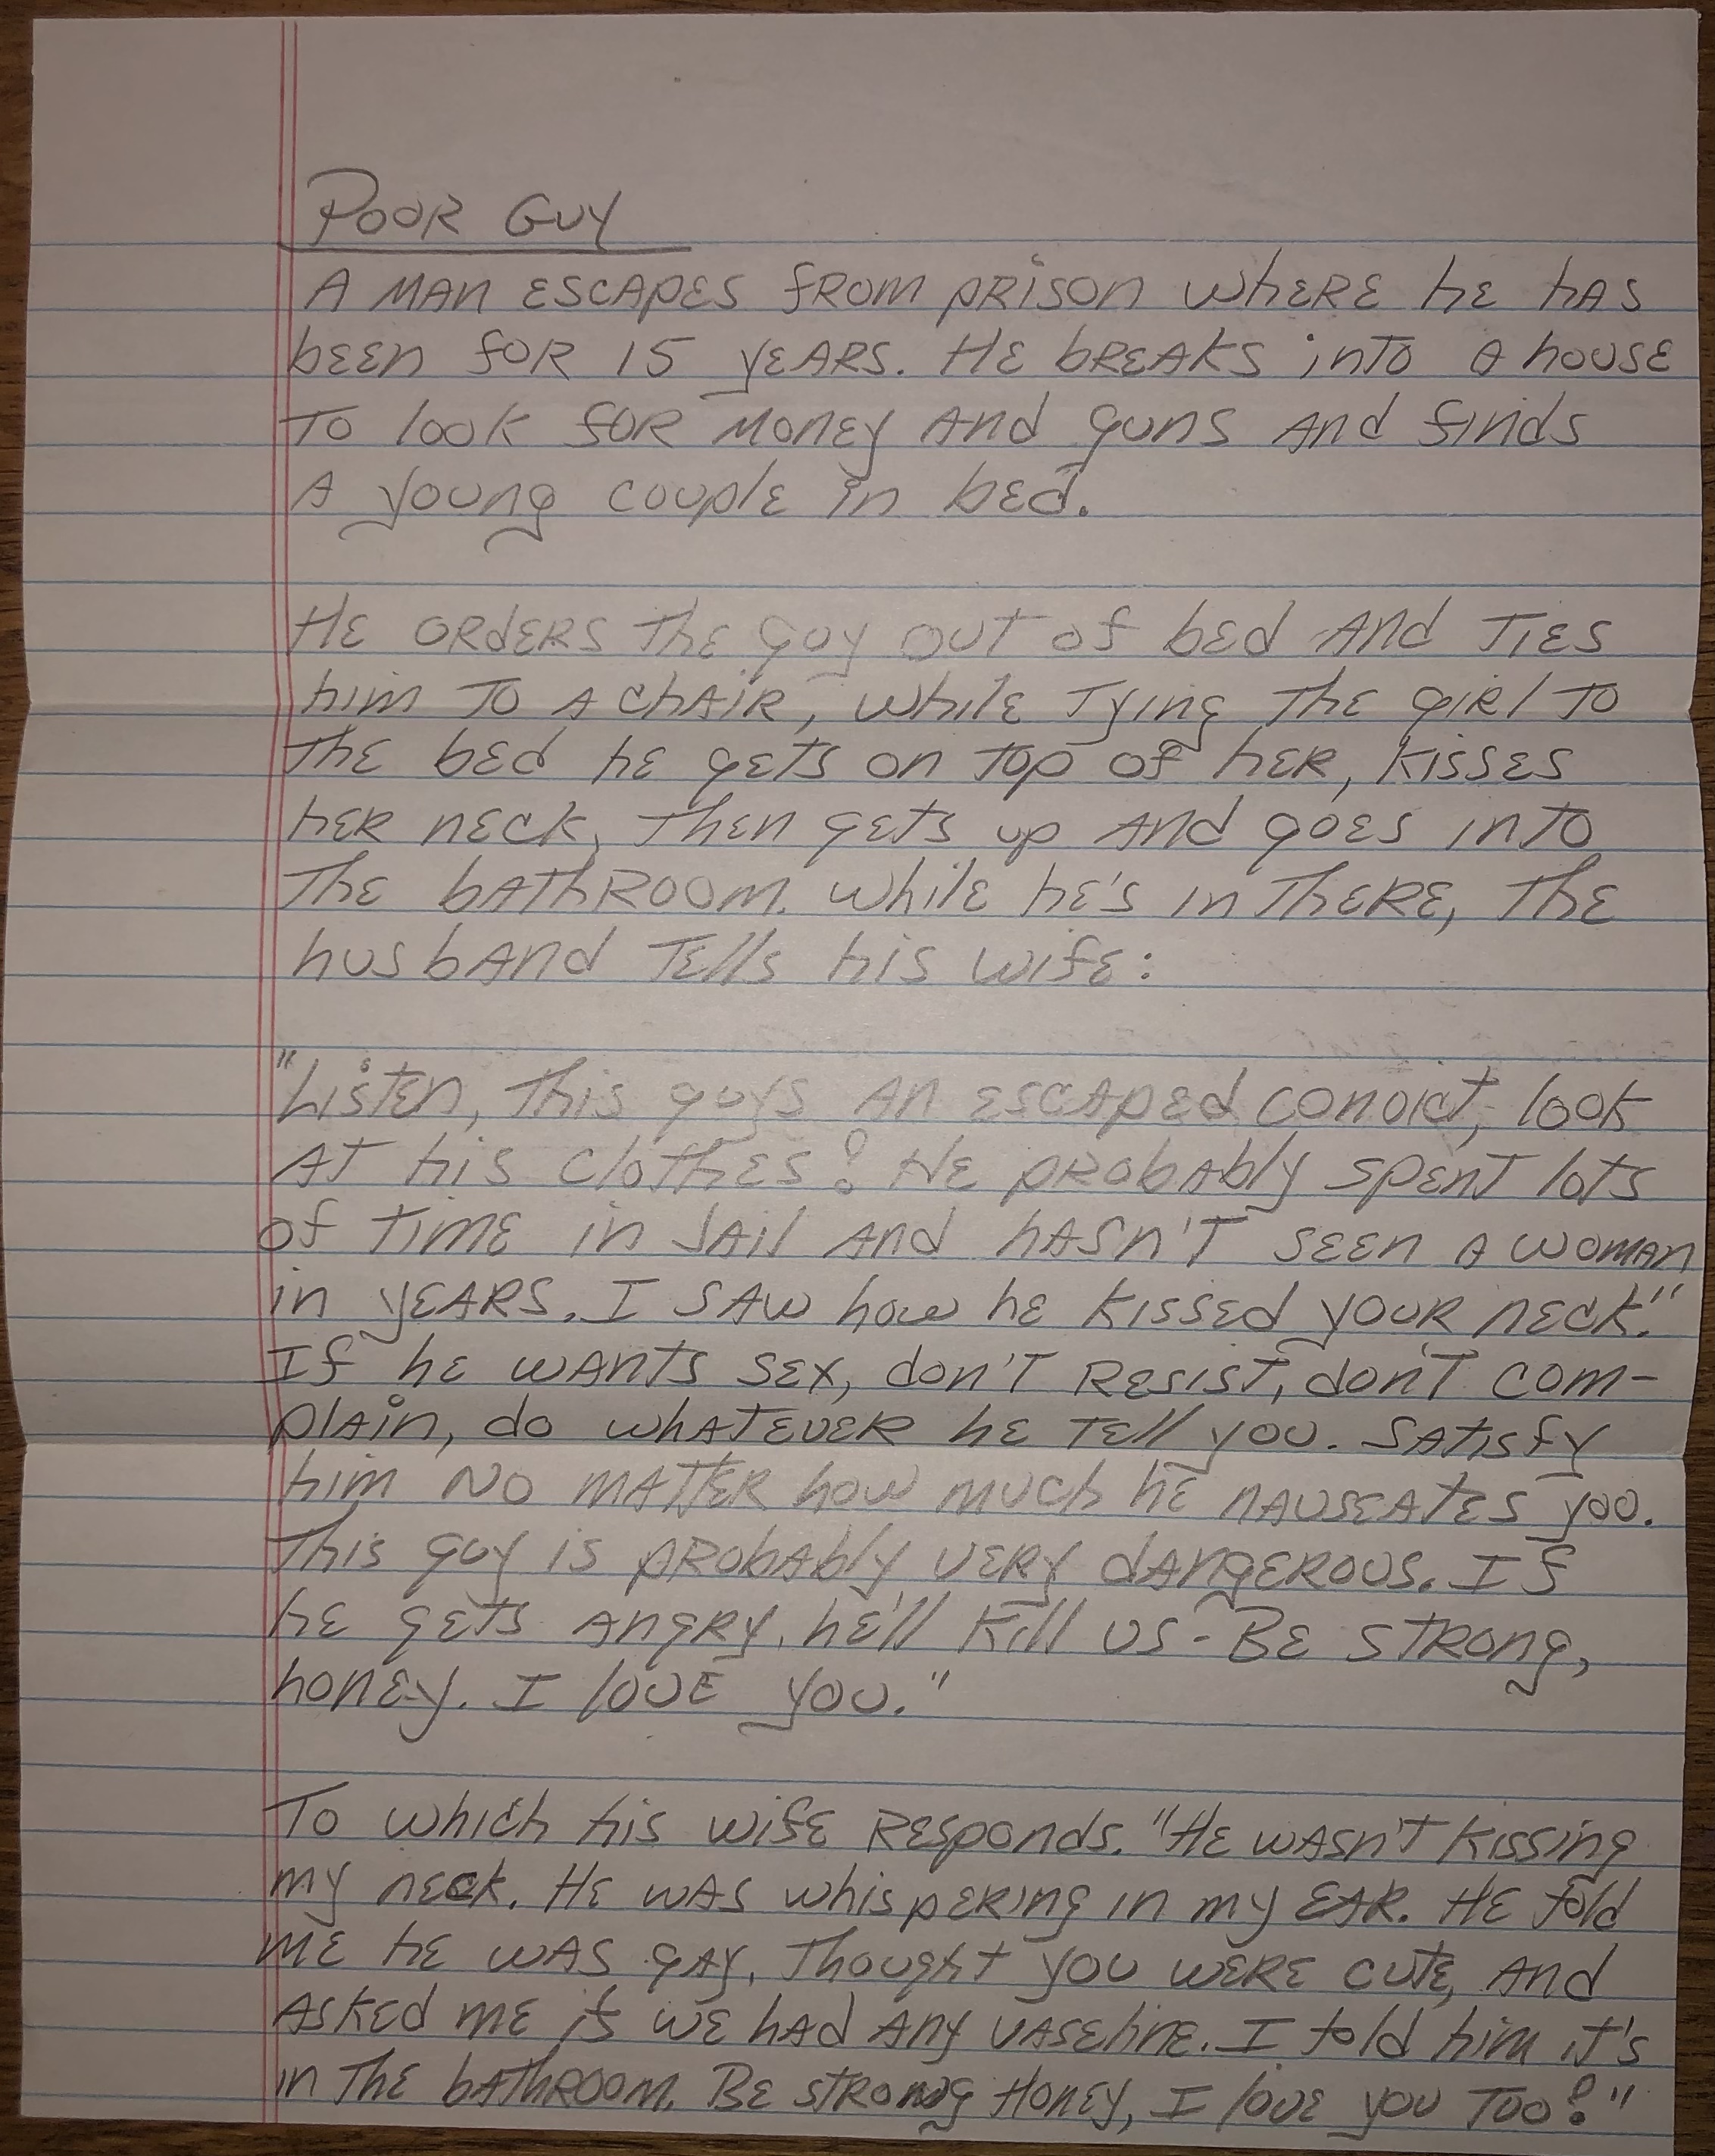 Poor Guy
A man escapes from prison where he has
been for 15 years. He breaks into a house
to look for money and guns and finds
a young couple in bed.
He orders the guy out of bed and ties
him to a chair, while tying the girl to
the bed he gets on top of her, kisses
her neck, then gets up and goes into
the bathroom. While he's in there, the
husband tells his wife:
"Listen, this guys an escaped convict, look
at his clothes! He probably spent lots
of time in jail and hasn't seen a woman
in years. I saw how he kissed your neck."
If he wants sex, don't resist, don't com-
plain, do whatever he tell you. Satisfy
him no matter how much he nauseates you.
This guy is probably very dangerous. If
he gets angry, he'll kill us - Be strong,
honey. I love you."
To which his wife responds. "He wasn't kissing
my neck. He was whispering in my ear. He told
me he was gay, thought you were cute, and
asked me if we had any vaseline. I told him it's
in the bathroom. Be strong Honey, I love you too!"